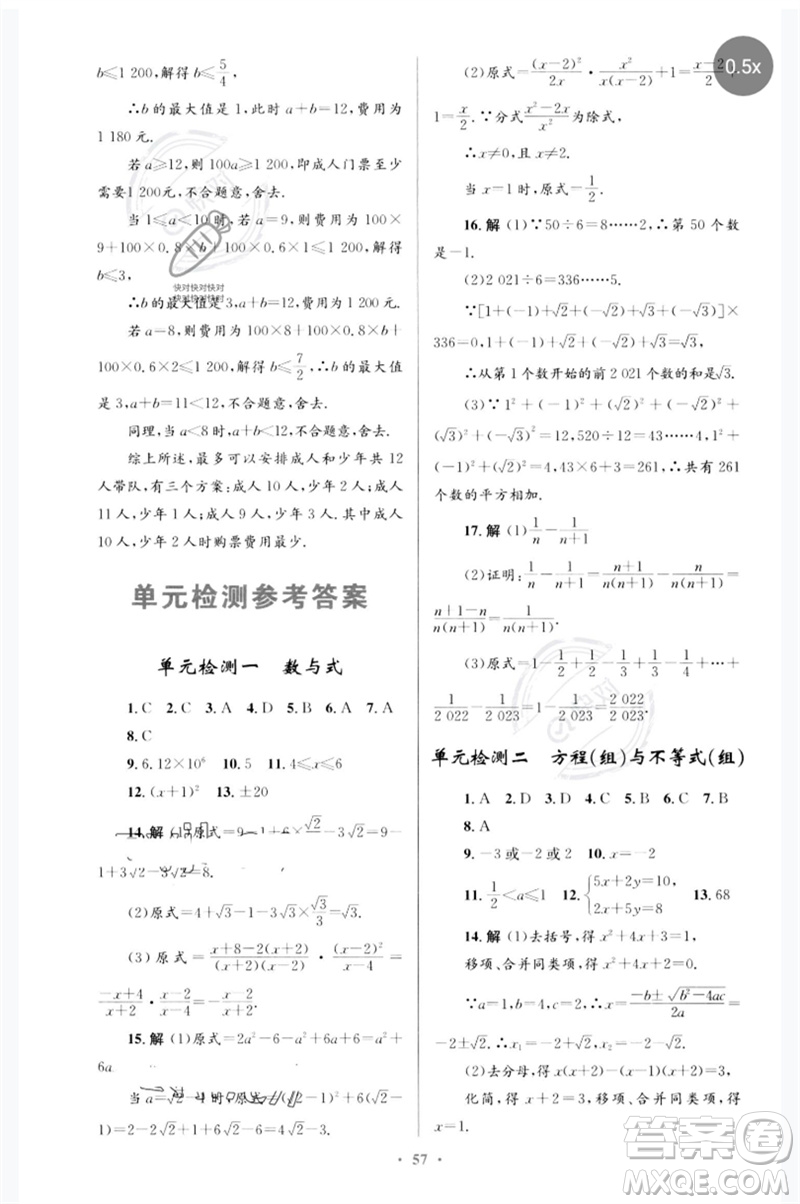 b≤1 200，解得 b≤5/4，
∴b 的最大值是 1，此时 a+b=12，费用为
1 180 元．
若 a≥12，则 100a≥1 200，即成人门票至少
需要1 200元，不合题意，舍去．
当 1≤a<10 时，若 a=9，则费用为 100×
9+100×0.8×b+100×0.6×1≤1 200，解得
b≤3，
∴b 的最大值是 3，a+b=12，费用为1 200元．
若 a=8，则费用为 100×8+100×0.8b+
100×0.6≤1 200，解得 b≤7/2，∴b 的最大值
是 3，a+b=11<12，不合题意，舍去．
同理，当 a<8 时，a+b<12，不合题意，舍去．
综上所述，最多可以安排成人和少年共 12
人带队，有三个方案：成人 10 人，少年 2 人；成
人 11 人，少年 1 人；成人 9 人，少年 3 人．其中成
人 10 人，少年 2 人时购票费用最少．
单元检测参考答案
单元检测一 数与式
1.C 2.C 3.A 4.D 5.B 6.A 7.A
8.C
9. 6.12×10⁶ 10. 5 11. 4≤x≤6
12. (x+1)² 13. ±20
14. 解 (1)原式=9-1+6×√2/2-3√2=9-
1+3√2-3√2=8.
(2)原式=4+√3-1-√3×√3/3=2+√3.
(3) 原式=(x+8-2(x+2))/((x+2)(x-2))·(x-2)²/(x-4)=
(-x+4)/(x+2)·(x-2)/(x-4)=-(x-2)/(x+2).
15. 解 (1)原式=2a²-6-a²+6a+6=a²+
6a
当 a=√2-1时，原式=
-1)=2-2√2+1+6√2-6=4√2-3.
(2)原式=(x-2)²/2x·x²/(x(x-2))+1=(x-2)/2+
1=x/2.∵分式(x²-2x)/x²为除式，
∴x≠0，且 x≠2.
当 x=1 时，原式=1/2.
16. 解 (1)∵50÷6=8……2，∴第 50 个数
是-1.
(2)2 021÷6=336……5.
∵[1+(-1)+√2+(-√2)+√3+(-√3)]×
336=0，且1+(-1)+√2+(-√2)+√3=√3，
∴从第 1 个数开始的前 2 021 个数的和是√3.
(3)∵1²+(-1)²+(√2)²+(-√2)²+
(√3)²+(-√3)²=12，520÷12=43……4，1²+
(-1)²+(√2)²=4，43×6+3=261，∴共有 261
个数的平方相加．
17. 解 (1)1/n-1/(n+1)
(2)证明：1/n-1/(n+1)=(n+1)/(n(n+1))-n/(n(n+1))=
(n+1-n)/(n(n+1))=1/(n(n+1)).
(3)原式=1-1/2+1/2-1/3+1/3-1/4+…+
1/2 021-1/2 022=1-1/2 022=2 021/2 022.
单元检测二 方程(组)与不等式(组)
1.A 2.D 3.D 4.C 5.B 6.C 7.B
8.A
9. -3或-2 10. x=-2
11. 1/2<a≤1 12. {5x+2y=10，2x+5y=8 13. 68
14. 解 (1)去括号，得 x²+4x+3=1，
移项、合并同类项，得 x²+4x+2=0，
∵a=1，b=4，c=2，∴x=(-b±√(b²-4ac))/2a=
-2±√2，∴x₁=-2+√2，x₂=-2-√2.
(2)去分母，得
化简，得 2x+2=x+3，移项、合并同类项，得
x=1.
57
0.5x
快对快对快对
快对快对快对
答案圈
MXQE.COM